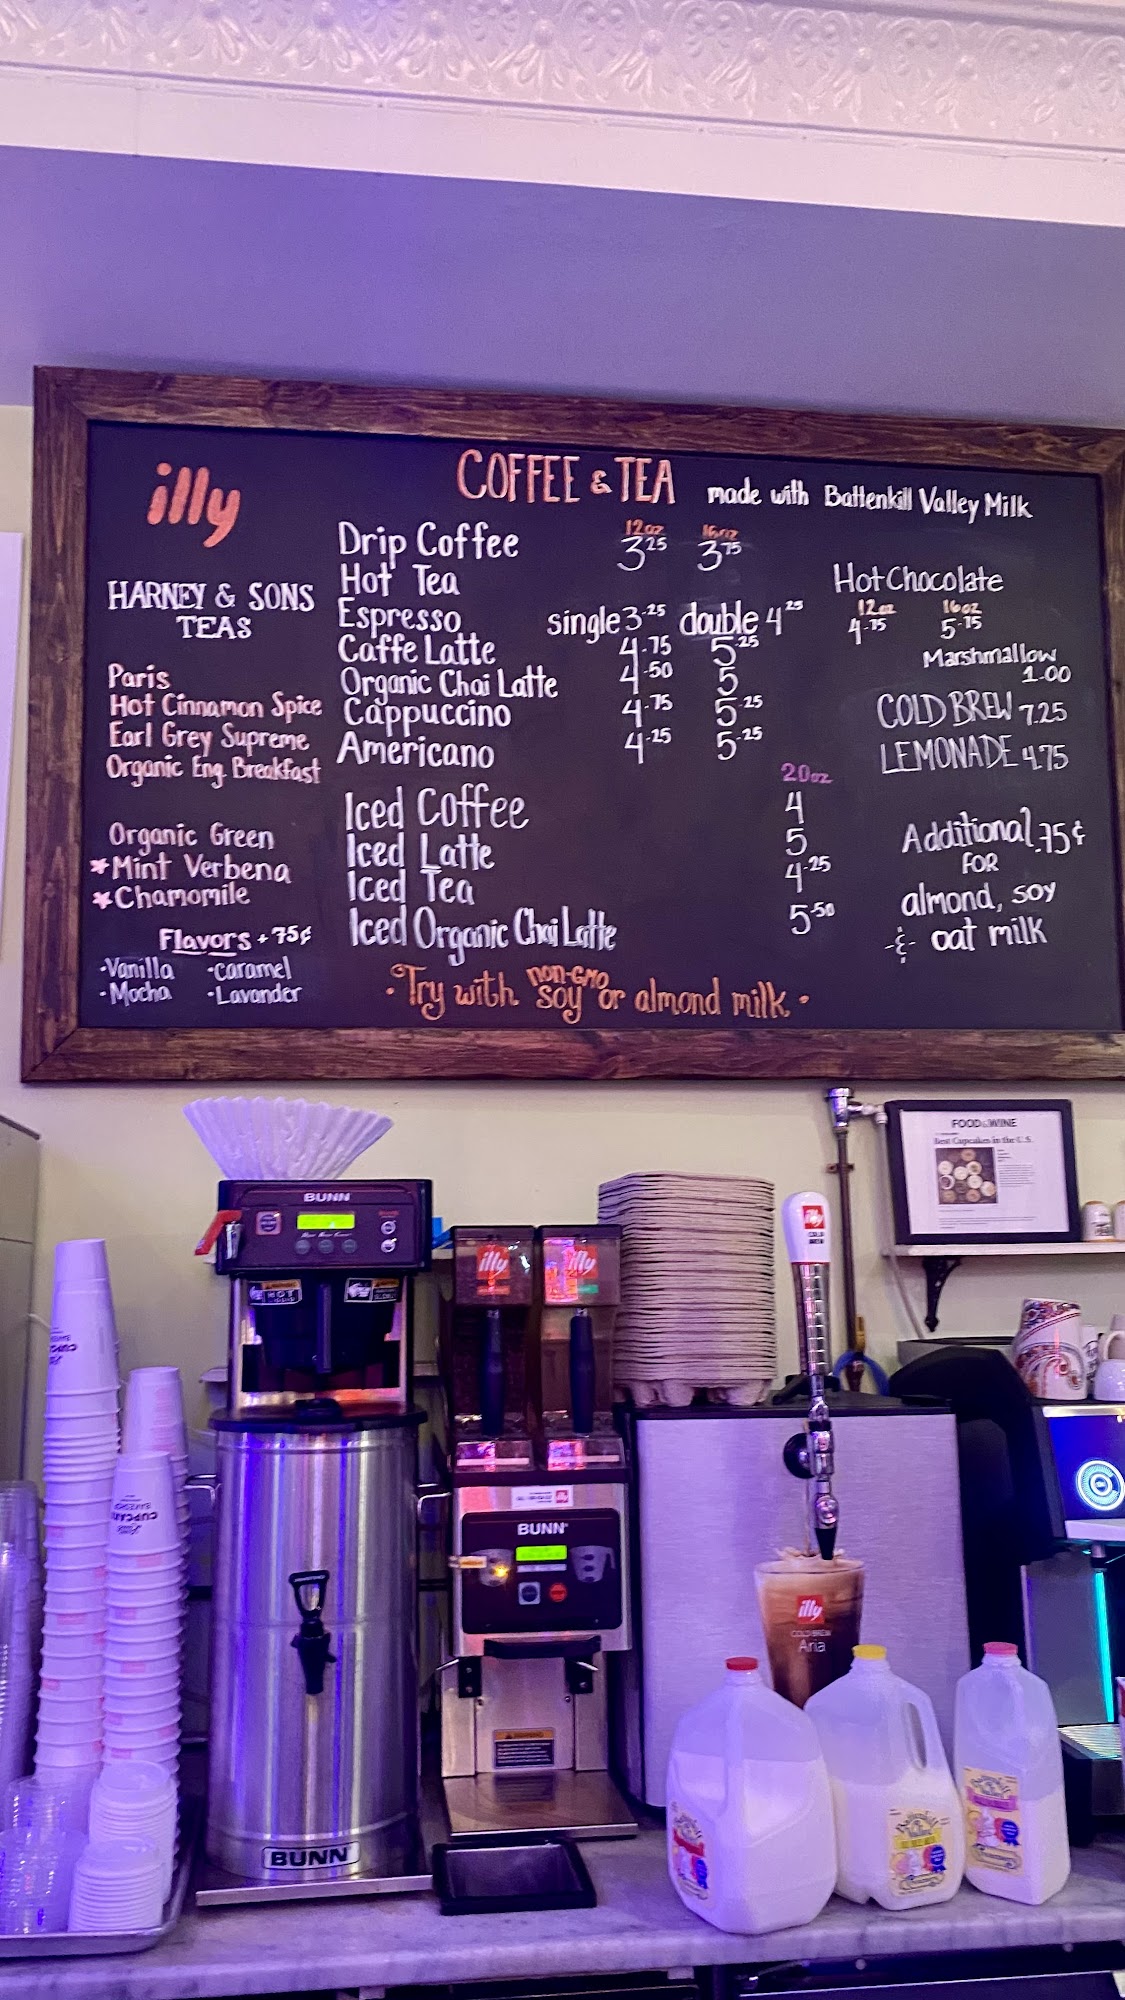 illy
HARNEY & SONS
TEAS
Paris
Hot Cinnamon Spice
Earl Grey Supreme
Organic Eng. Breakfast
Organic Green
*Mint Verbena
*Chamomile
Flavors + 75¢
·Vanilla ·Caramel
·Mocha ·Lavander
COFFEE & TEA made with Battenkill Valley Milk
12oz 16oz
Drip Coffee 3.25 3.75
Hot Tea
Espresso single 3.25 double 4.25
Caffe Latte 4.75 5.25
Organic Chai Latte 4.50 5
Cappuccino 4.75 5.25
Americano 4.25 5.25
20oz
Iced Coffee 4
Iced Latte 5
Iced Tea 4.25
Iced Organic Chai Latte 5.50
·Try with non-GMO soy or almond milk·
Hot Chocolate
12oz 16oz
4.75 5.75
Marshmallow
1.00
COLD BREW 7.25
LEMONADE 4.75
Additional .75¢
FOR
almond, soy
-&- oat milk
FOOD & WINE
Best Cupcakes in the U.S.
BUNN
HOT
illy
illy
illy
COLD
BREW
BUNN
BUNN
illy
COLD BREW
Aria